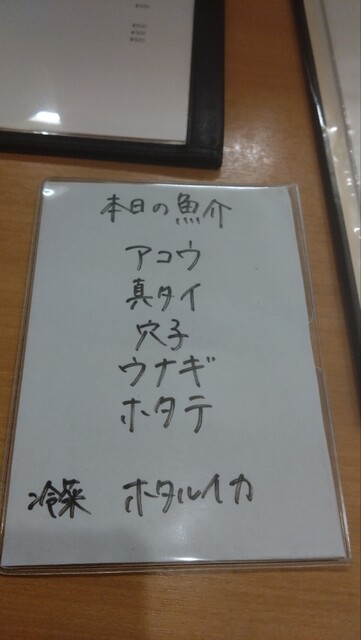 本日の魚介
アコウ
真タイ
穴子
ウナギ
ホタテ
冷菜 ホタルイカ